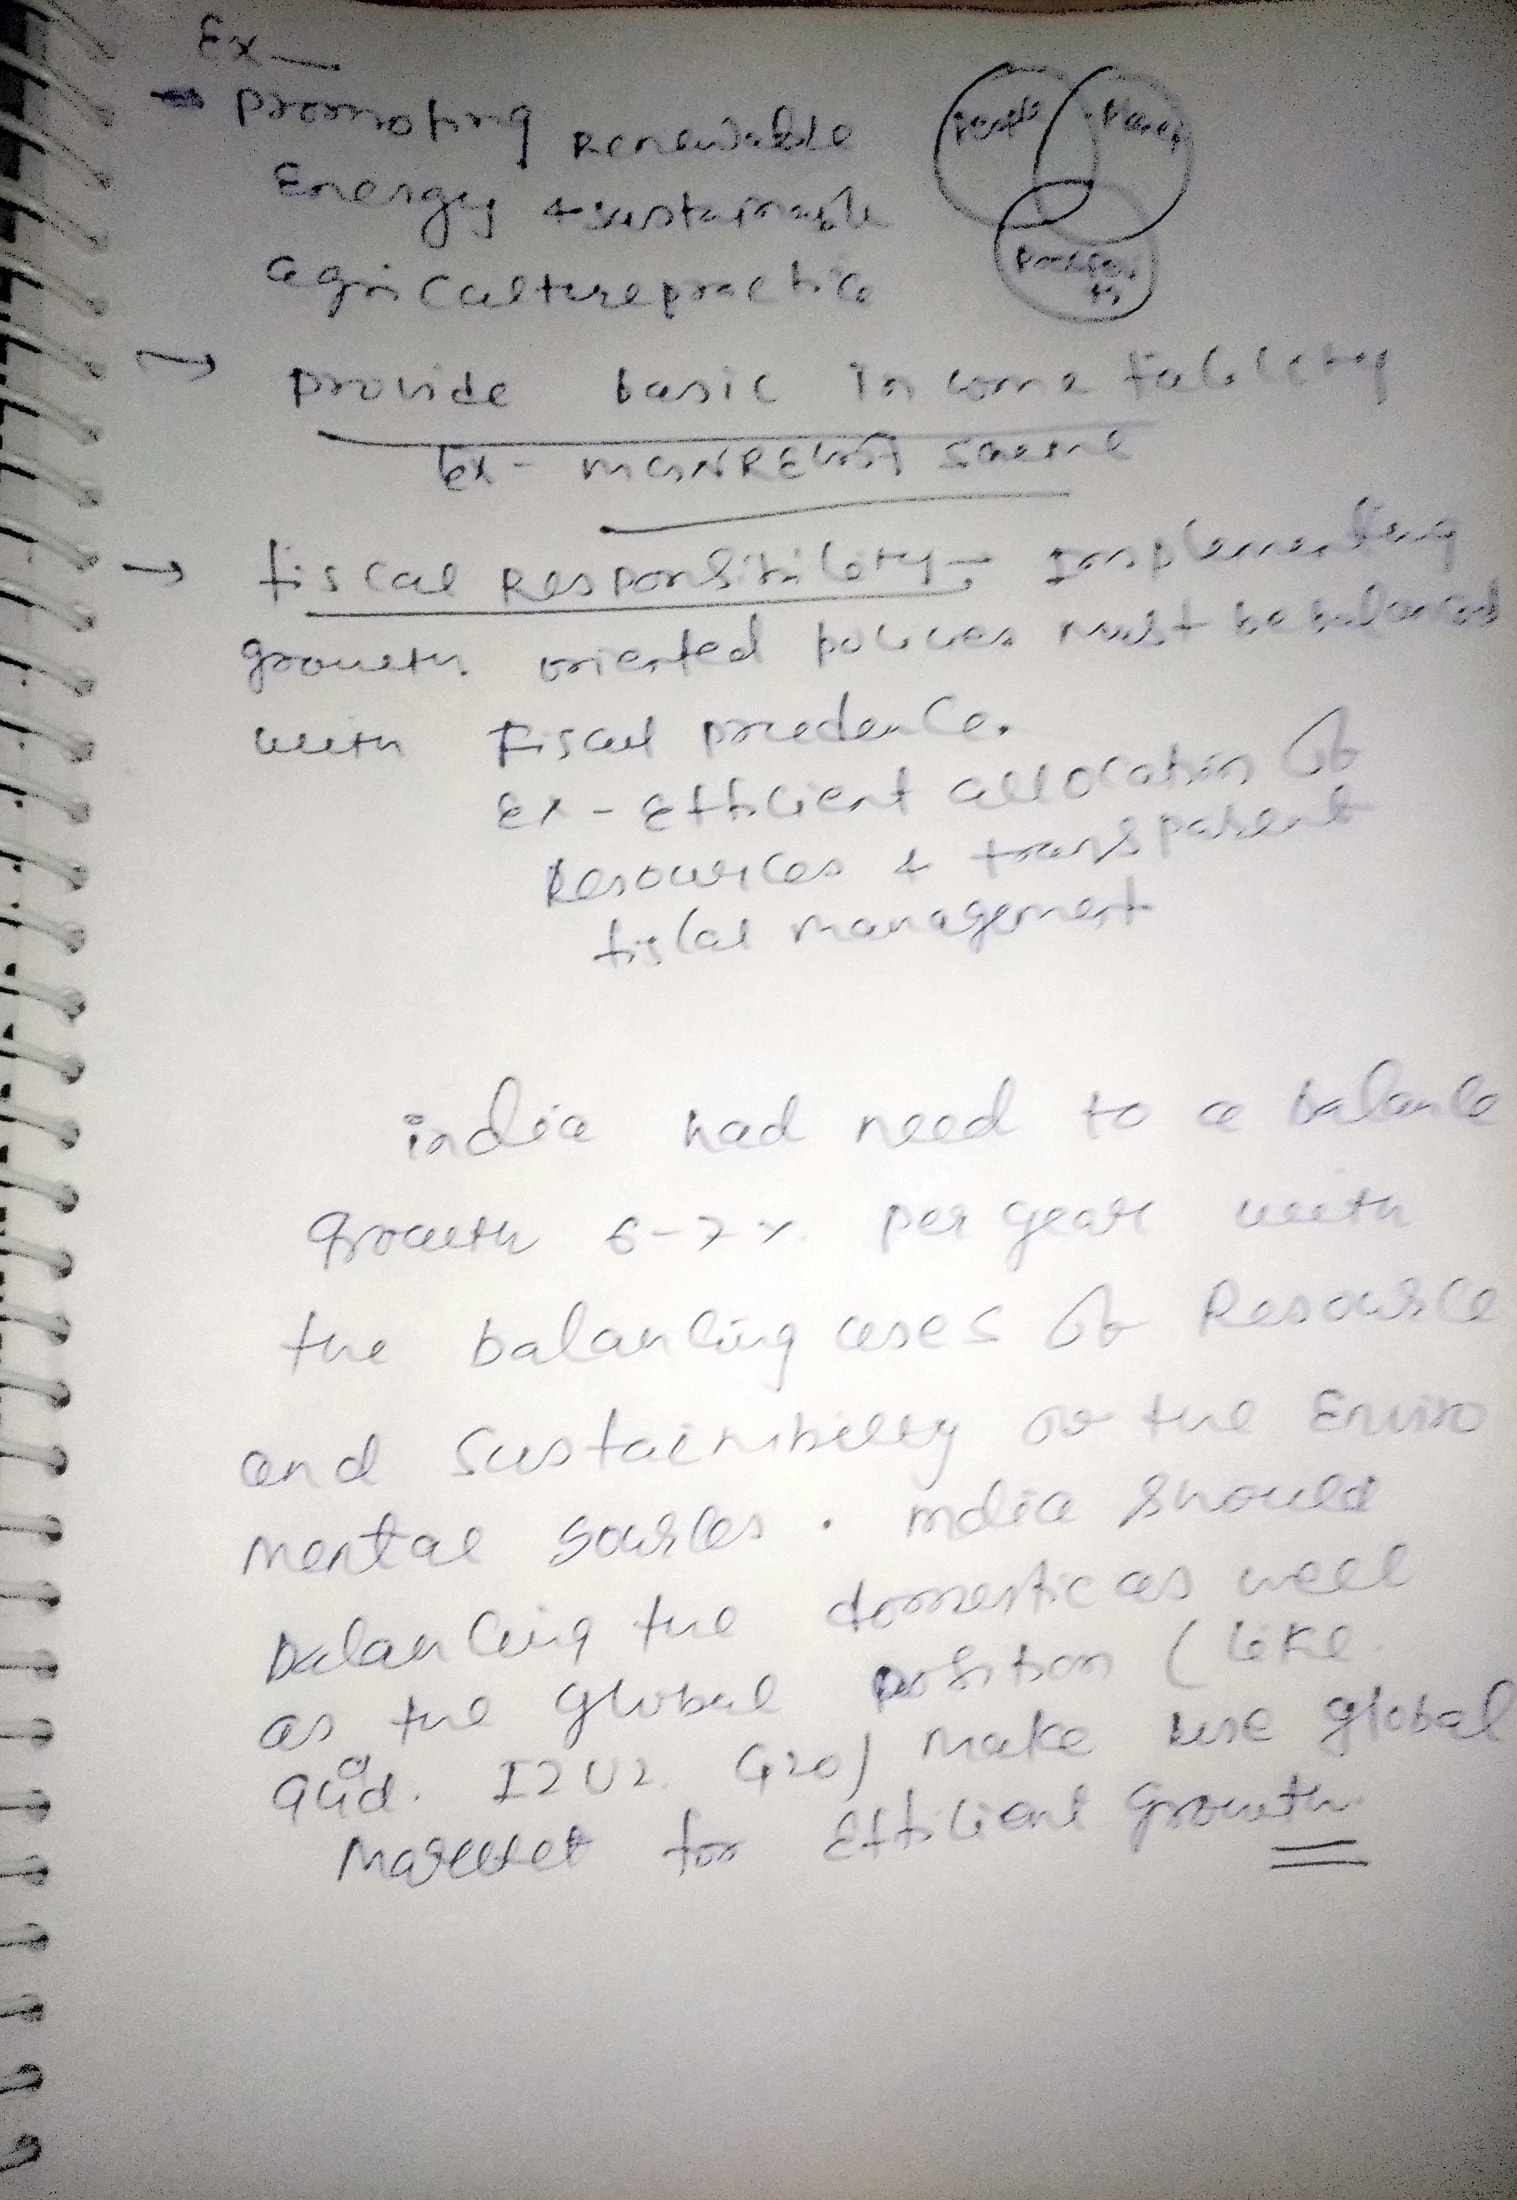 Ex —
→ Promoting Renewable
Energy & sustainable
agriculture practice
People
Planet
→ provide basic income
Ex - MGNREGA
→ fiscal Responsibility - Implementing
growth oriented policies must be balanced
with fiscal prudence.
Ex - Efficient allocation of
Resources & transparent
fiscal management
india had need to a balance
growth 6-7 % per year with
the balancing uses of Resource
and Sustainibility of the Enviro
mental sources . india should
balancing the domestic as well
as the global position (like
quad. I2U2. G20) make use global
for Efficient growth